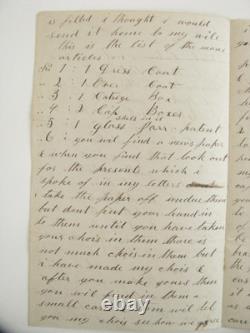 is filled i thought i would
send it home to my wife
this is the list of the mane
articles
No 1 : 1 Dress Coat
" 2 : 1 Over Coat
" 3 : 1 Catrige Box
" 4 : 2 Cap Boxes
" 5 : 1 glass Jarr patent
" 6 : i you will find a news paper
& when you find that look out
for the presents which i
spoke of in my letters
take the paper off undue them
but dont put your hand in
to them until you have taken
your chois in them there is
not much chois in them but
i have made my chois &
after you make yours then
you will find in them a
small case them will let
you my chois so now we